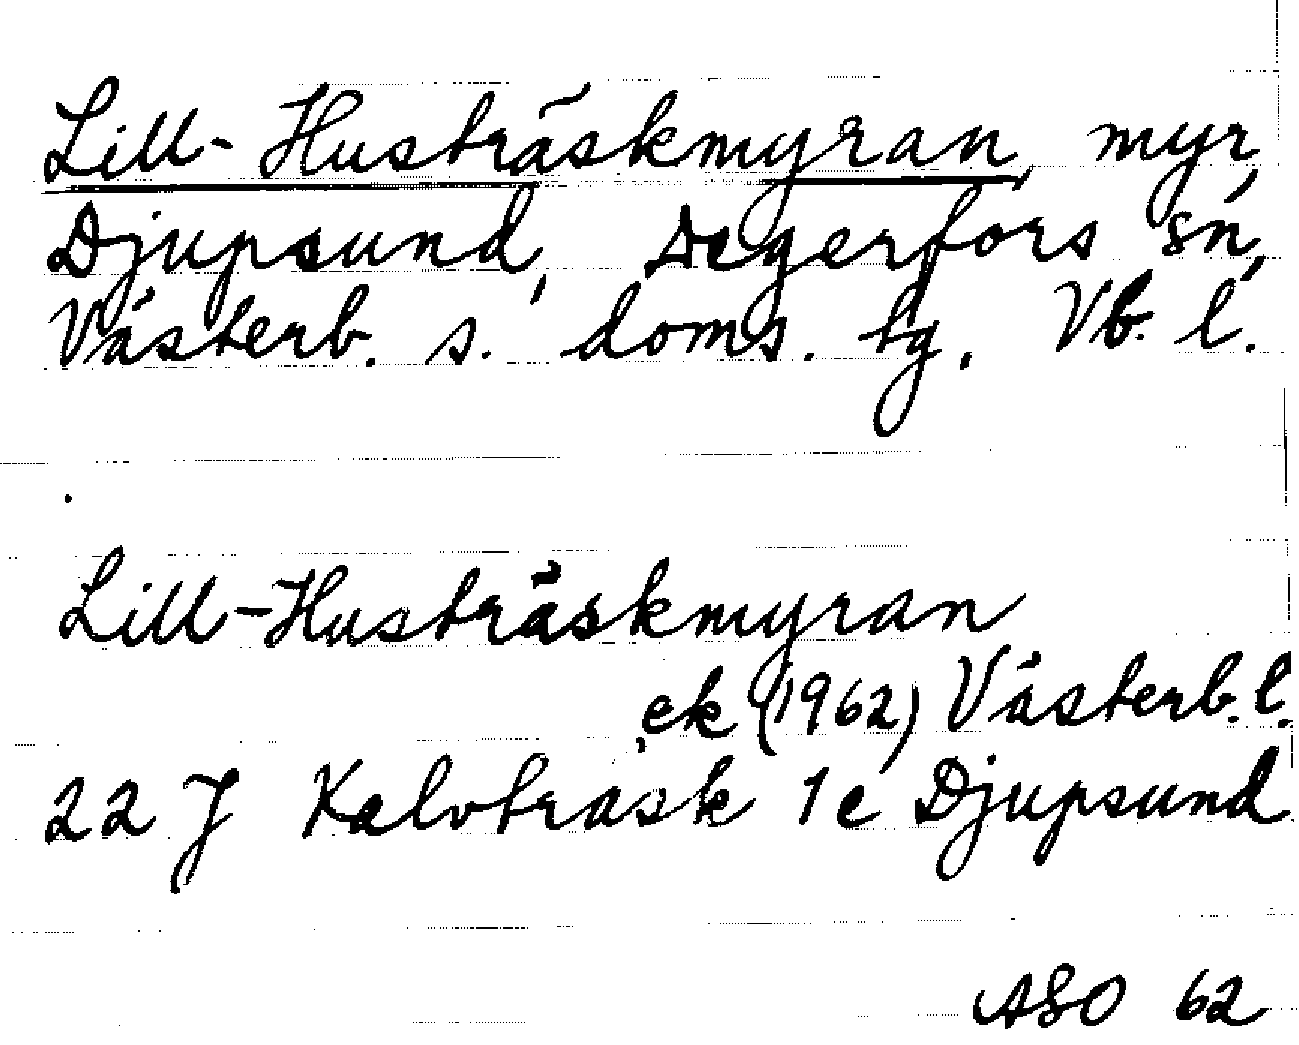 Lill-Husträskmyran, myr,
Djupsund, Degerfors sn,
Västerb. s. doms. tg. Vb. l.
Lill-Husträskmyran
ek (1962) Västerb. l.
22 J Kalvträsk 1e Djupsund
ASO 62